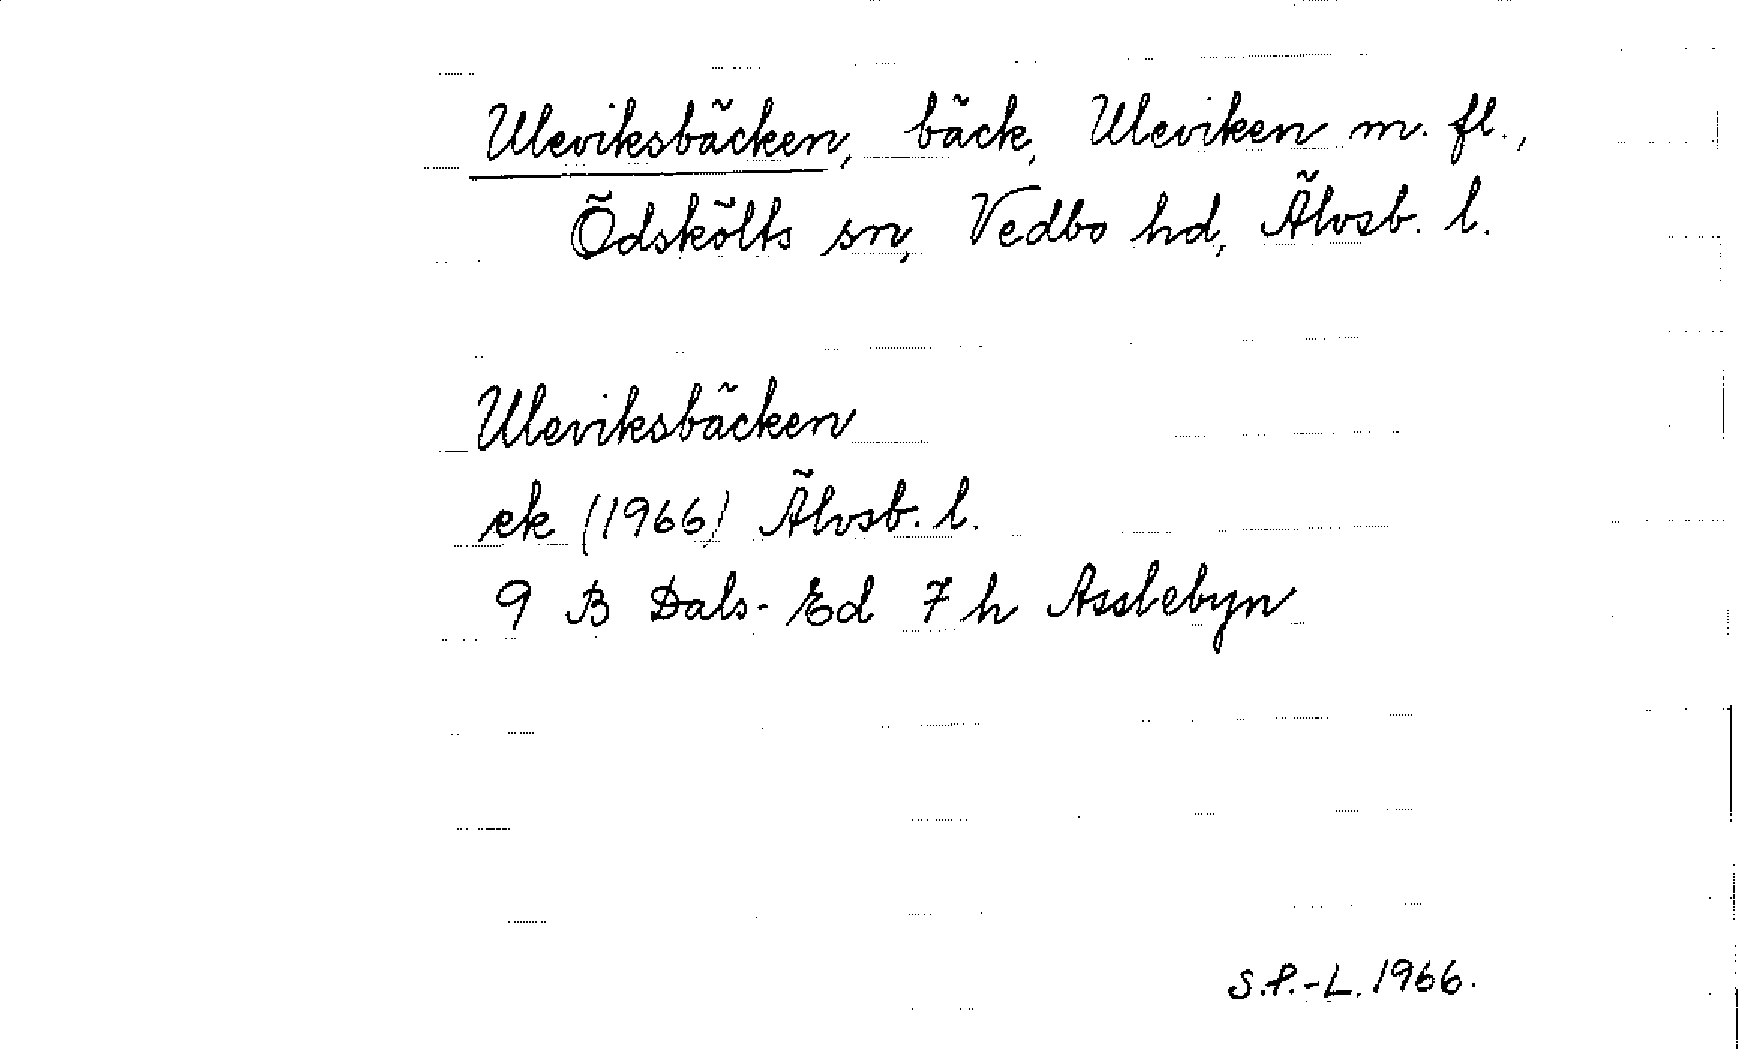 Uleviksbäcken, bäck, Uleviken m. fl.,
Ödskölts sn, Vedbo hd, Älvsb. l.
Uleviksbäcken
ek (1966) Älvsb. l.
9 B Dals-Ed 7 h Asslebyn
S.P.-L. 1966.